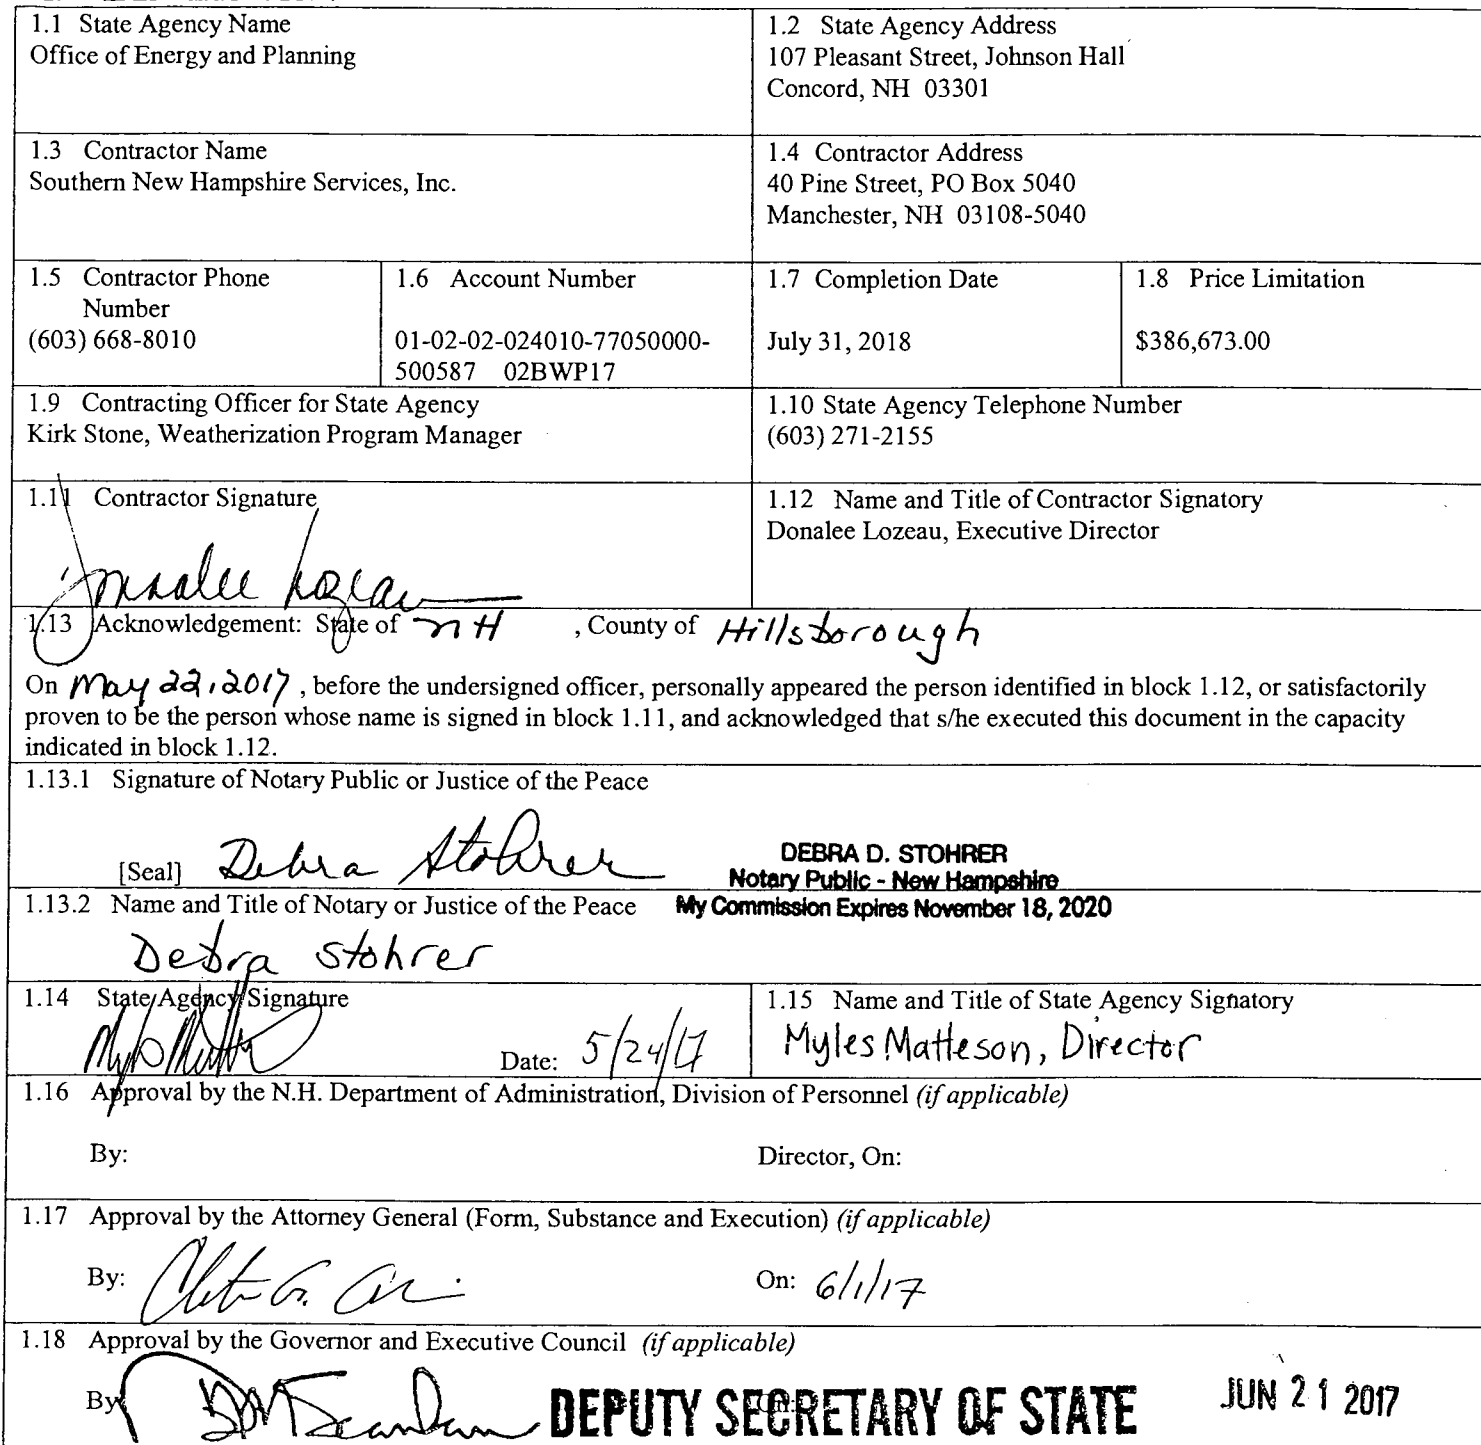 1.1 State Agency Name
Office of Energy and Planning
1.2 State Agency Address
107 Pleasant Street, Johnson Hall
Concord, NH 03301
1.3 Contractor Name
Southern New Hampshire Services, Inc.
1.4 Contractor Address
40 Pine Street, PO Box 5040
Manchester, NH 03108-5040
1.5 Contractor Phone
Number
(603) 668-8010
1.6 Account Number
01-02-02-024010-77050000-
500587 02BWP17
1.7 Completion Date
July 31, 2018
1.8 Price Limitation
$386,673.00
1.9 Contracting Officer for State Agency
Kirk Stone, Weatherization Program Manager
1.10 State Agency Telephone Number
(603) 271-2155
1.11 Contractor Signature
Donalee Lozeau
1.12 Name and Title of Contractor Signatory
Donalee Lozeau, Executive Director
1.13 Acknowledgement: State of NH , County of Hillsborough
On May 22, 2017 , before the undersigned officer, personally appeared the person identified in block 1.12, or satisfactorily
proven to be the person whose name is signed in block 1.11, and acknowledged that s/he executed this document in the capacity
indicated in block 1.12.
1.13.1 Signature of Notary Public or Justice of the Peace
[Seal] Debra Stohrer
DEBRA D. STOHRER
Notary Public - New Hampshire
My Commission Expires November 18, 2020
1.13.2 Name and Title of Notary or Justice of the Peace
Debra Stohrer
1.14 State Agency Signature
Date: 5/24/17
1.15 Name and Title of State Agency Signatory
Myles Matteson, Director
1.16 Approval by the N.H. Department of Administration, Division of Personnel (if applicable)
By: Director, On:
1.17 Approval by the Attorney General (Form, Substance and Execution) (if applicable)
By: On: 6/1/17
1.18 Approval by the Governor and Executive Council (if applicable)
By DEPUTY SECRETARY OF STATE On: JUN 21 2017